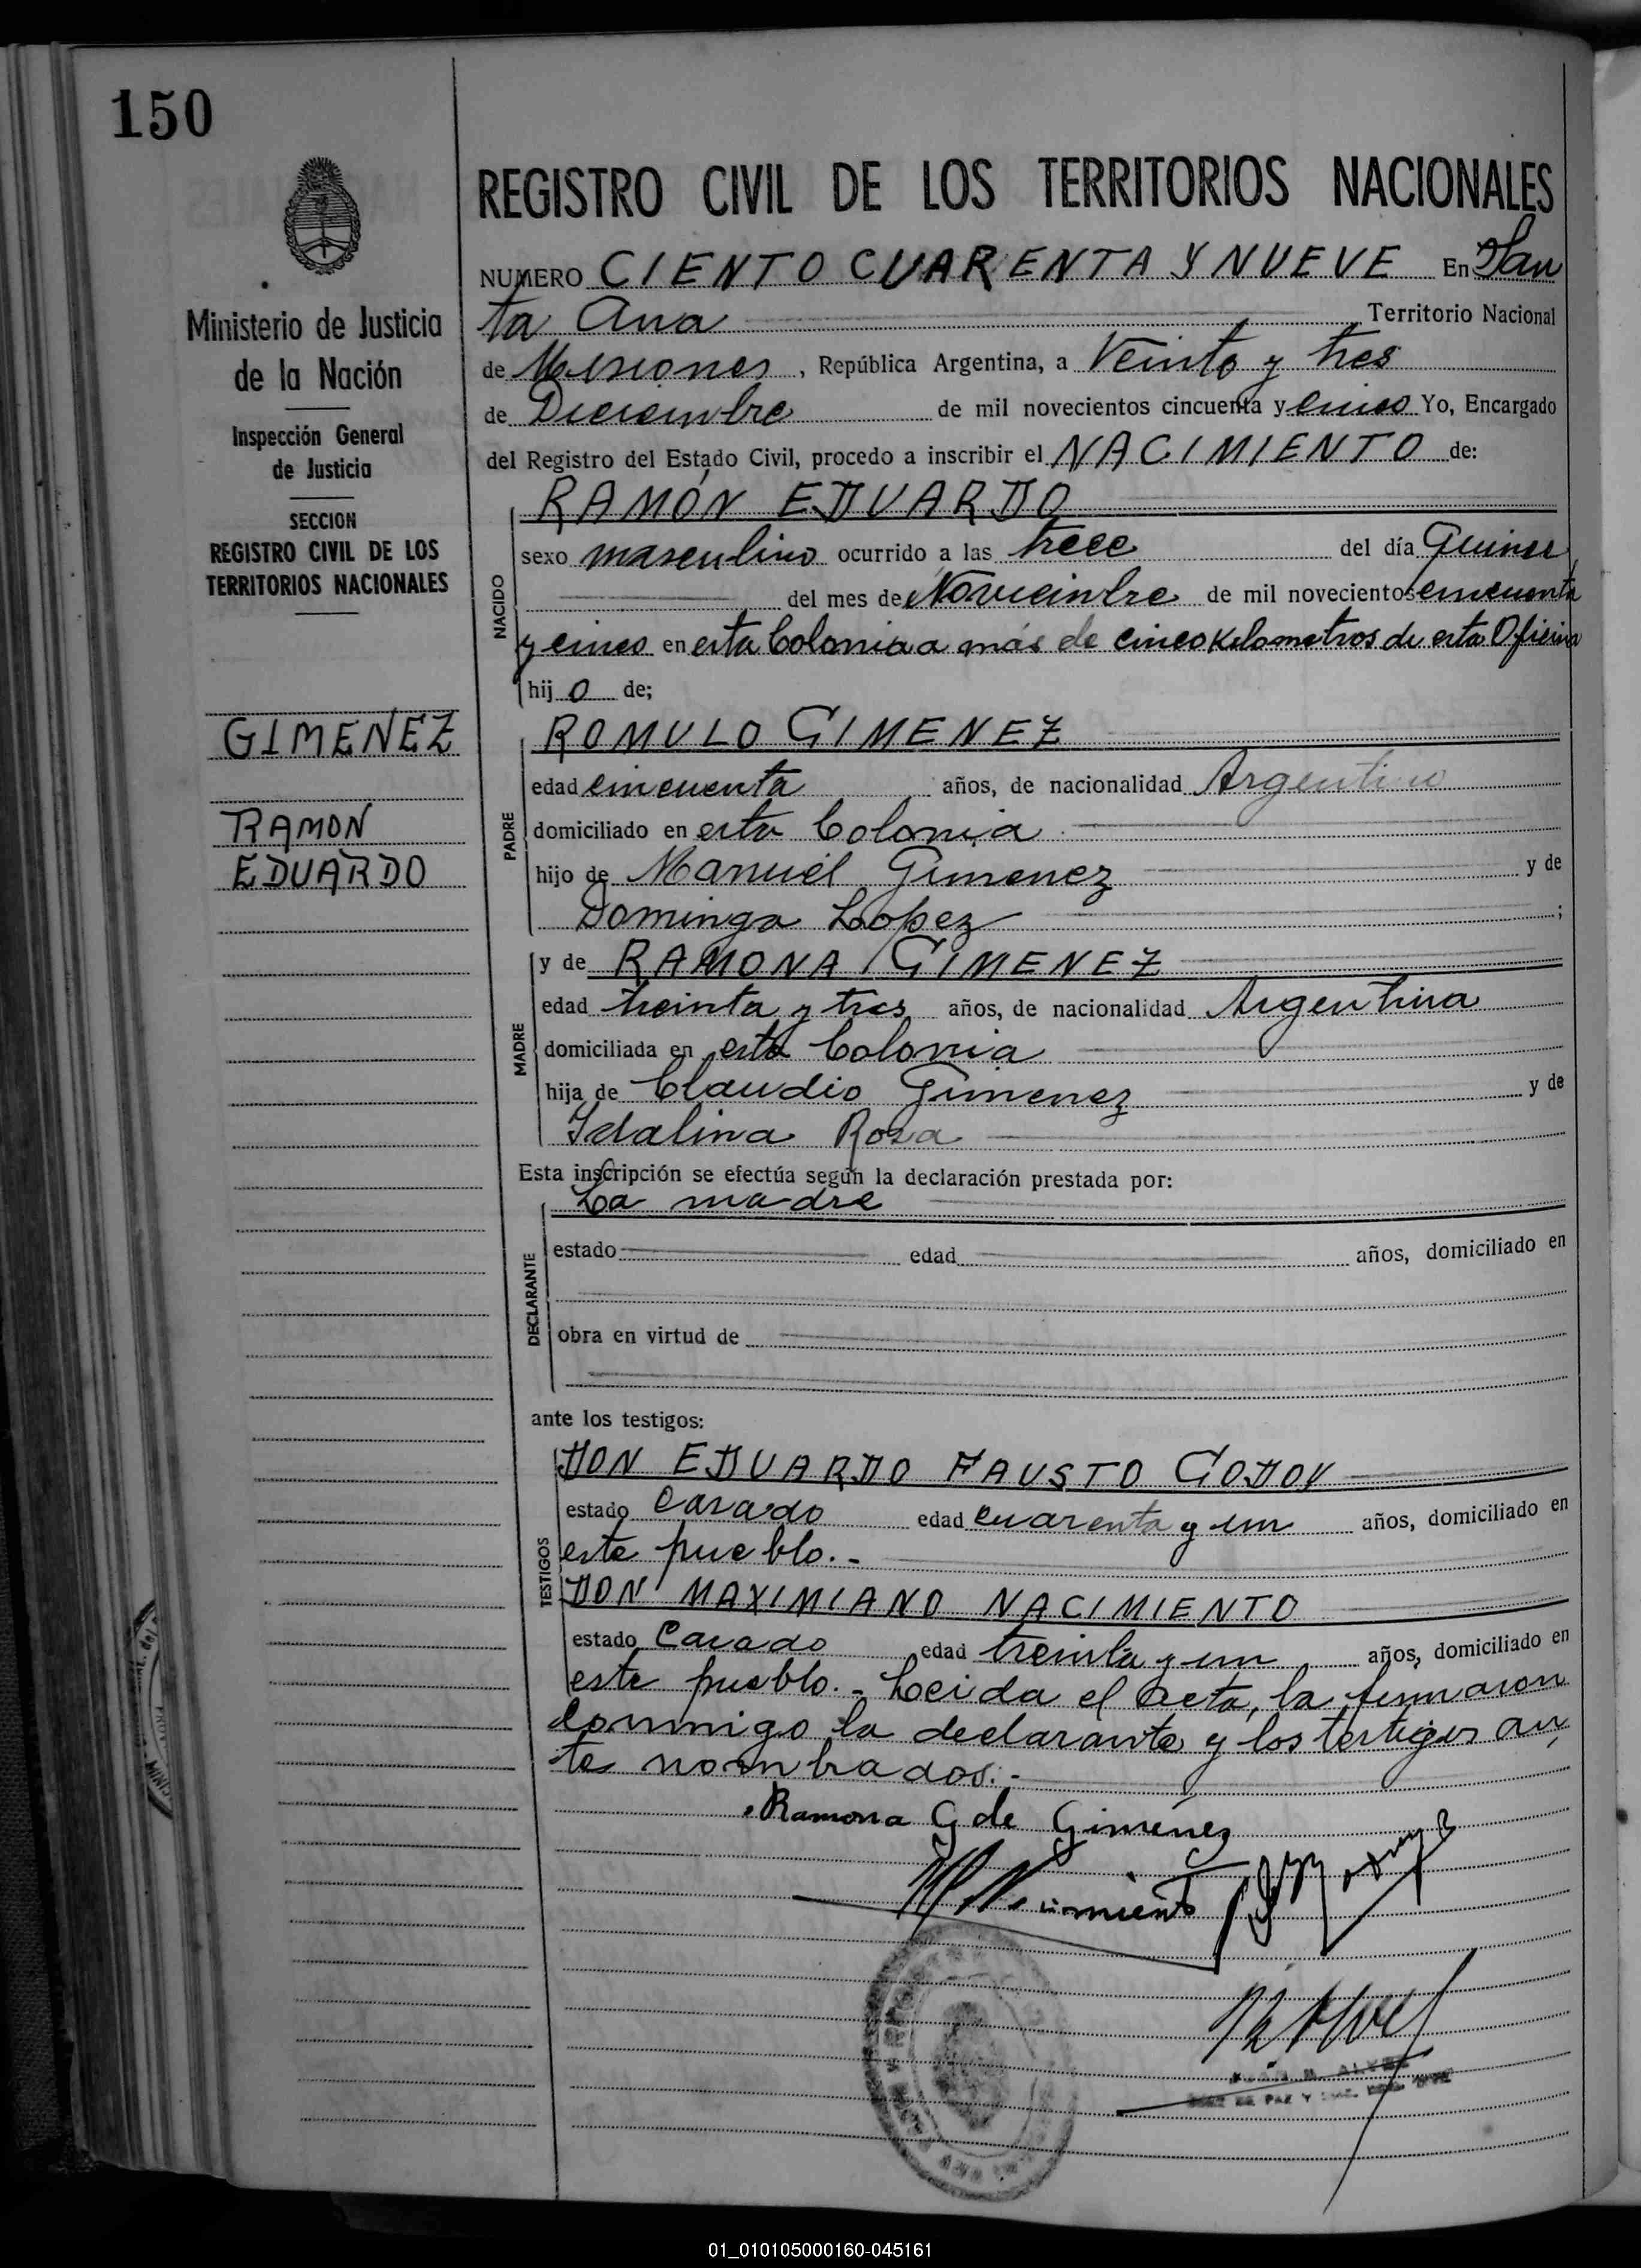 150
Ministerio de Justicia
de la Nación
Inspección General
de Justicia
SECCION
REGISTRO CIVIL DE LOS
TERRITORIOS NACIONALES
GIMENEZ
RAMON
EDUARDO
REGISTRO CIVIL DE LOS TERRITORIOS NACIONALES
NUMERO CIENTO CUARENTA Y NUEVE En San
ta Ana Territorio Nacional
de Misiones, República Argentina, a Veinte y tres
de Diciembre de mil novecientos cincuenta y cinco Yo, Encargado
del Registro del Estado Civil, procedo a inscribir el NACIMIENTO de:
RAMÓN EDUARDO
NACIDO
sexo masculino ocurrido a las trece del día Quince
del mes de Noviembre de mil novecientos cincuenta
y cinco en esta Colonia a más de cinco kilometros de esta Oficina
hij o de;
ROMULO GIMENEZ
PADRE
edad cincuenta años, de nacionalidad Argentino
domiciliado en esta Colonia
hijo de Manuel Gimenez y de
Dominga Lopez ;
y de RAMONA GIMENEZ
MADRE
edad treinta y tres años, de nacionalidad Argentina
domiciliada en esta Colonia
hija de Claudio Gimenez y de
Idalina Rosa
Esta inscripción se efectúa según la declaración prestada por:
La madre
DECLARANTE
estado edad años, domiciliado en
obra en virtud de
ante los testigos:
DON EDUARDO FAUSTO GODOY
TESTIGOS
estado Casado edad cuarenta y un años, domiciliado en
este pueblo.-
DON MAXIMIANO NACIMIENTO
estado Casado edad treinta y un años, domiciliado en
este pueblo.- Leida el Acta, la firmaron
conmigo la declarante y los testigos an
te nombrados.-
Ramona G de Giménez
ALVEZ
PAZ Y
01_010105000160-045161